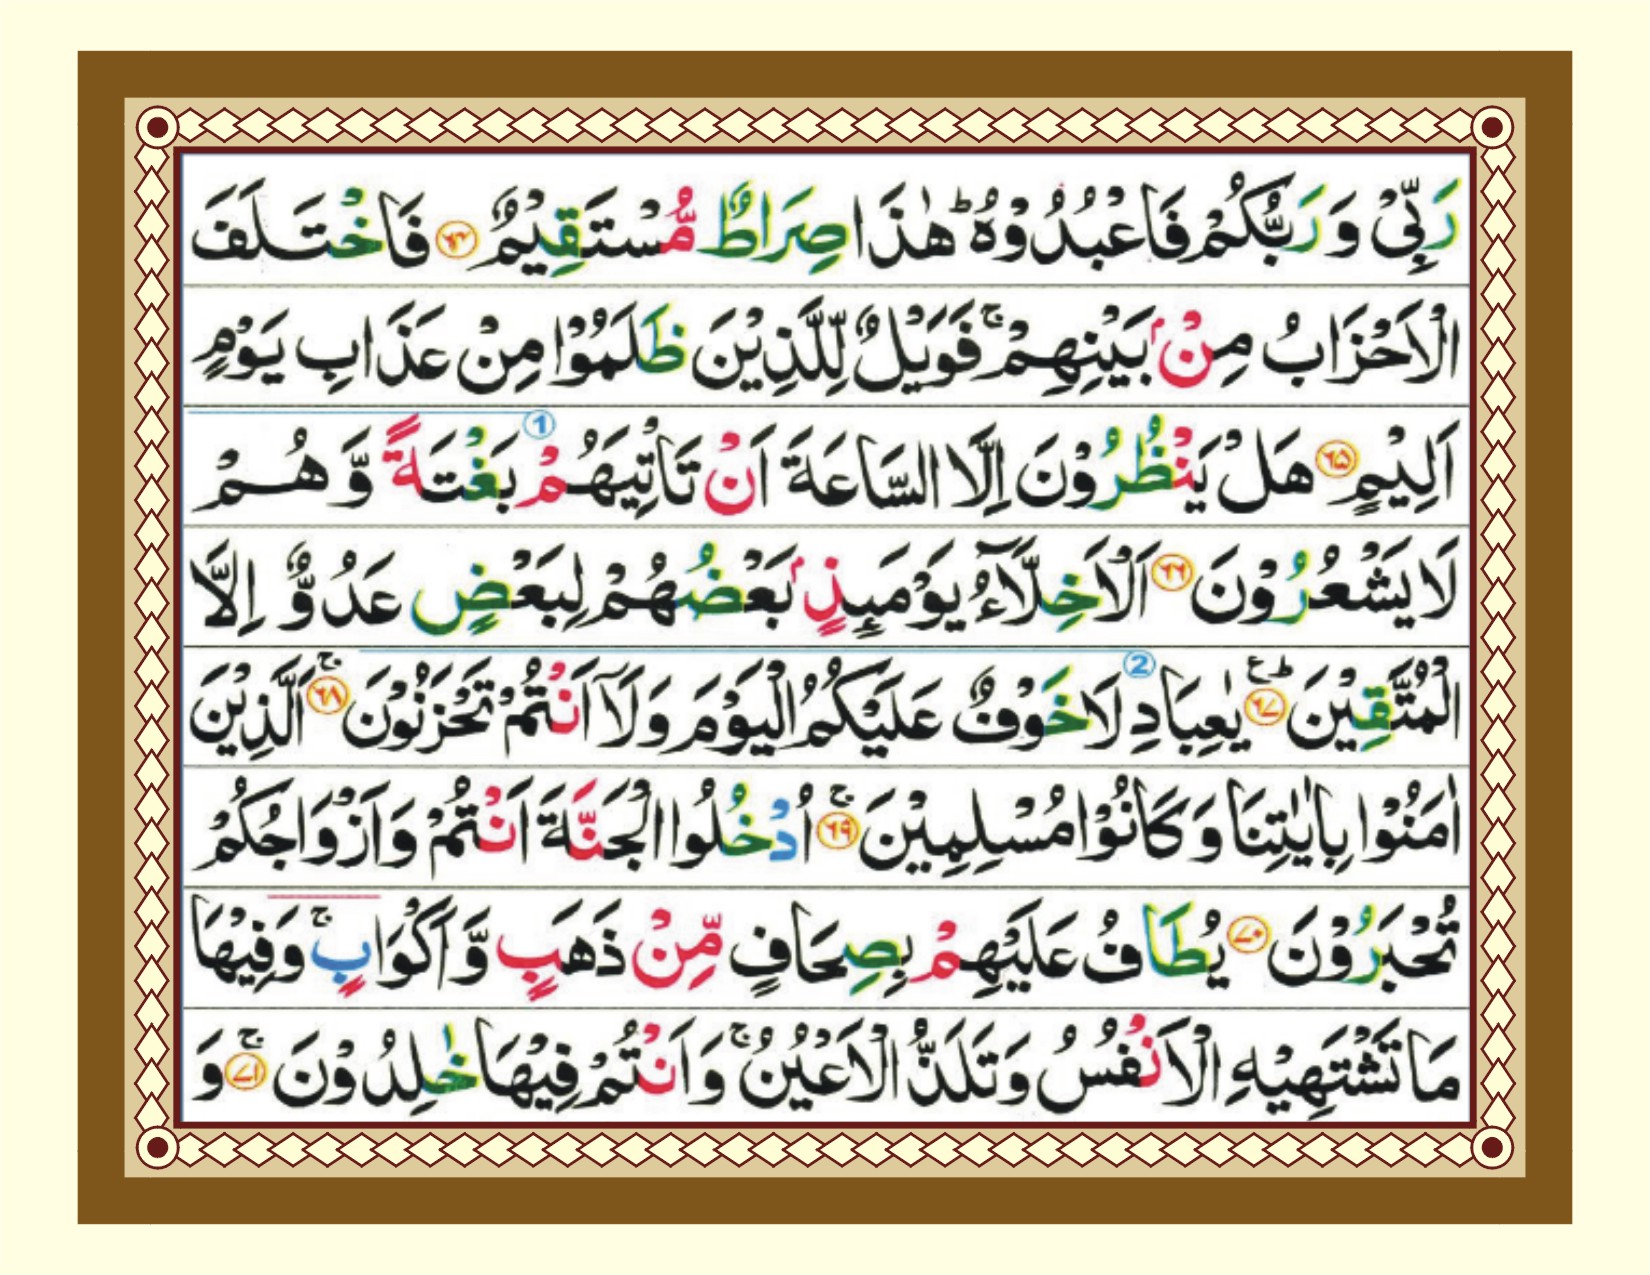 رَبِّیْ وَ رَبُّكُمْ فَاعْبُدُوْهُ ؕ هٰذَا صِرَاطٌ مُّسْتَقِیْمٌ ۶۴ فَاخْتَلَفَ
الْاَحْزَابُ مِنْۢ بَیْنِهِمْ ۚ فَوَیْلٌ لِّلَّذِیْنَ ظَلَمُوْا مِنْ عَذَابِ یَوْمٍ
اَلِیْمٍ ۶۵ هَلْ یَنْظُرُوْنَ اِلَّا السَّاعَةَ اَنْ تَاْتِیَهُمْ 1 بَغْتَةً وَّ هُمْ
لَا یَشْعُرُوْنَ ۶۶ اَلْاَخِلَّآءُ یَوْمَىِٕذٍۭ بَعْضُهُمْ لِبَعْضٍ عَدُوٌّ اِلَّا
الْمُتَّقِیْنَ ؕع ۶۷ یٰعِبَادِ 2 لَا خَوْفٌ عَلَیْكُمُ الْیَوْمَ وَ لَاۤ اَنْتُمْ تَحْزَنُوْنَ ۚ ۶۸ اَلَّذِیْنَ
اٰمَنُوْا بِاٰیٰتِنَا وَ كَانُوْا مُسْلِمِیْنَ ۚ ۶۹ اُدْخُلُوا الْجَنَّةَ اَنْتُمْ وَ اَزْوَاجُكُمْ
تُحْبَرُوْنَ ۷۰ یُطَافُ عَلَیْهِمْ بِصِحَافٍ مِّنْ ذَهَبٍ وَّ اَكْوَابٍ ۚ وَ فِیْهَا
مَا تَشْتَهِیْهِ الْاَنْفُسُ وَ تَلَذُّ الْاَعْیُنُ ۚ وَ اَنْتُمْ فِیْهَا خٰلِدُوْنَ ۚ ۷۱ وَ